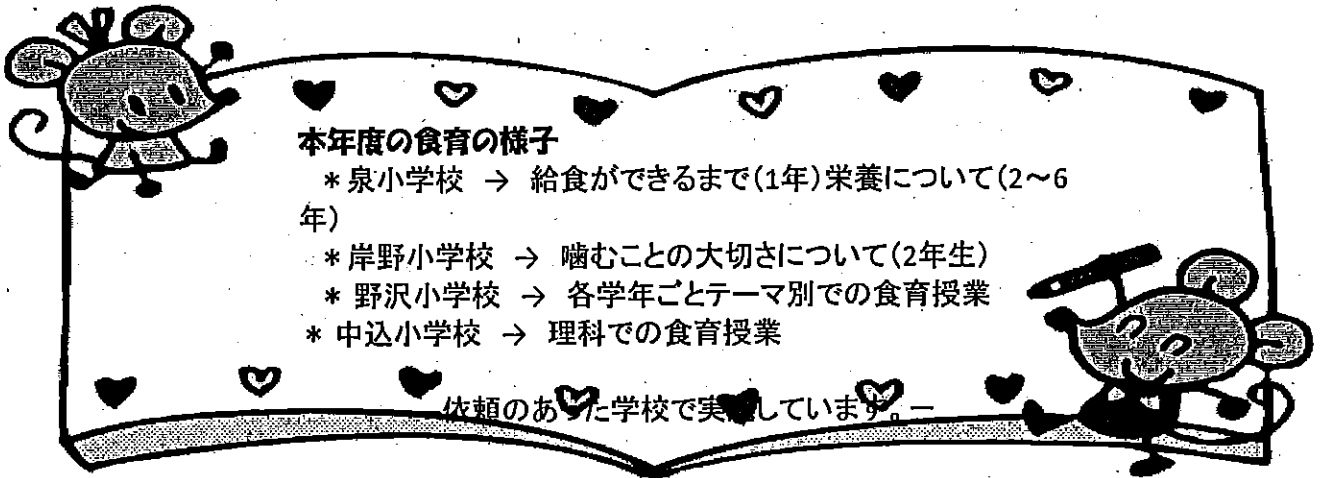 本年度の食育の様子
＊泉小学校 → 給食ができるまで(1年)栄養について(2～6
年)
＊岸野小学校 → 噛むことの大切さについて(2年生)
＊ 野沢小学校 → 各学年ごとテーマ別での食育授業
＊ 中込小学校 → 理科での食育授業
依頼のあった学校で実しています。ー